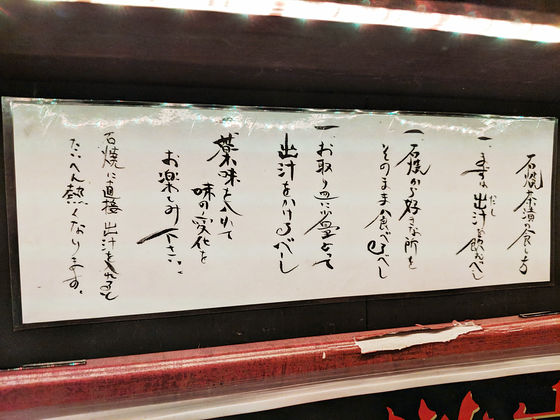 石焼茶漬の食し方
一、まずは出汁を飲むべし
だし
一、石焼から好きな所を
そのまま食べるべし
一、お取り皿に少量とって
出汁をかけるべーし
薬味を入れて
味の変化を
お楽しみ下さい
石焼に直接出汁を入れると
たいへん熱くなります。